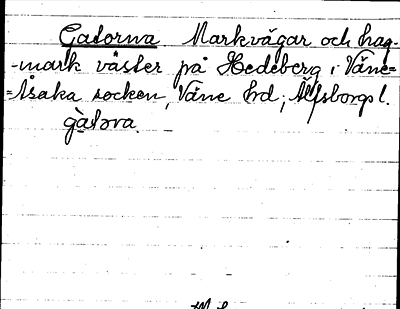 Gatorna Markvägar och hag-
-mark väster på Hedeberg i Väne-
=Åsaka socken, Väne hrd; Älfsborgs l.
gàtơra.